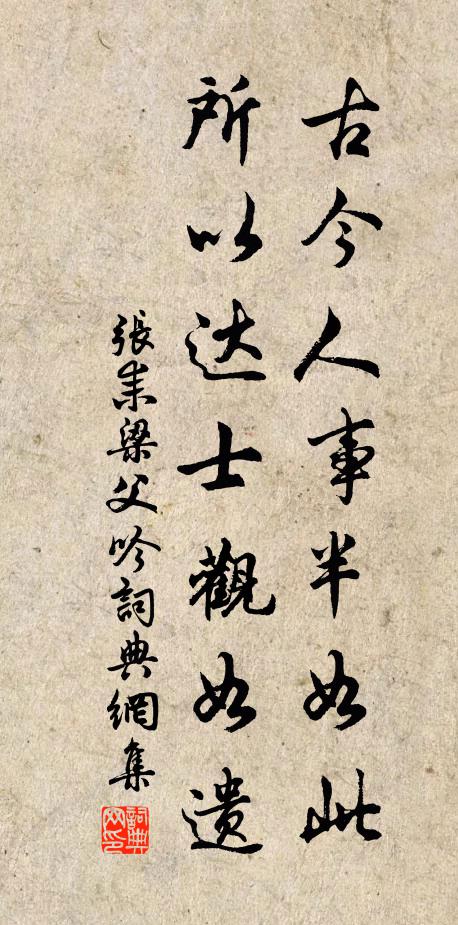 古今人事半如此
所以达士觀如遗
張耒梁父吟詞典網集
詞典网印